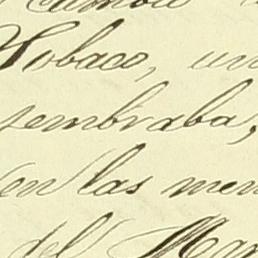 Tobaco, un
sembraba,
en las mem
del Mar